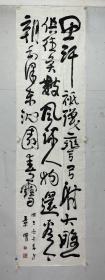 思汗祇識彎弓射大雕
俱往矣數風流人物還看今
朝毛澤東沁園春雪